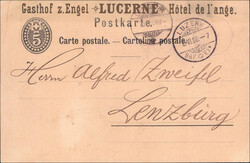 Gasthof z.Engel LUCERNE Hôtel de l'ange.
Postkarte.
Carte postale. — Cartolina postale.
5
LUZERN
Herrn Alfred Zweifel
Lenzburg